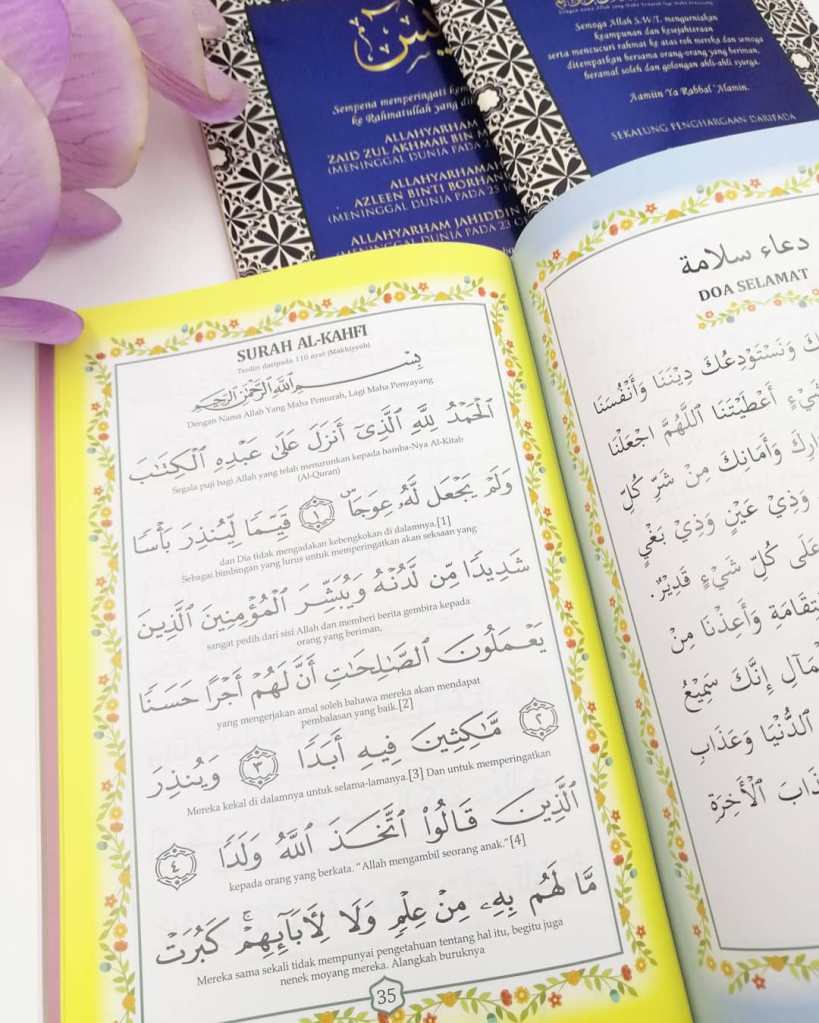 يس
Sempena memperingati
ke Rahmatullah yang
ALLAHYARHAM
ZAID ZUL AKHMAR BIN
(MENINGGAL DUNIA PADA
ALLAHYARHAM
AZLEEN BINTI
(MENINGGAL DUNIA PADA 25
ALLAHYARHAM JAHIDDIN
(MENINGGAL DUNIA PADA 23
Semoga Allah S.W.T. mengurniakan
keampunan dan kesejahteraan
serta mencucuri rahmat ke atas roh mereka dan semoga
ditempatkan bersama orang-orang yang beriman,
beramal soleh dan golongan ahli-ahli syurga.
Aamiin Ya Rabbal 'Alamin.
SEKALUNG PENGHARGAAN DARIPADA
SURAH AL-KAHFI
Terdiri daripada 110 ayat (Makkiyyah)
بِسْمِ اللَّهِ الرَّحْمَٰنِ الرَّحِيمِ
Dengan Nama Allah Yang Maha Pemurah, Lagi Maha Penyayang
ٱلْحَمْدُ لِلَّهِ ٱلَّذِىٓ أَنزَلَ عَلَىٰ عَبْدِهِ ٱلْكِتَـٰبَ
Segala puji bagi Allah yang telah menurunkan kepada hamba-Nya Al-Kitab
(Al-Quran)
وَلَمْ يَجْعَل لَّهُۥ عِوَجَاۜ ١ قَيِّمًا لِّيُنذِرَ بَأْسًا
dan Dia tidak mengadakan kebengkokan di dalamnya.[1]
Sebagai bimbingan yang lurus untuk memperingatkan akan seksaan yang
شَدِيدًا مِّن لَّدُنْهُ وَيُبَشِّرَ ٱلْمُؤْمِنِينَ ٱلَّذِينَ
sangat pedih dari sisi Allah dan memberi berita gembira kepada
orang yang beriman,
يَعْمَلُونَ ٱلصَّـٰلِحَـٰتِ أَنَّ لَهُمْ أَجْرًا حَسَنًا
yang mengerjakan amal soleh bahawa mereka akan mendapat
pembalasan yang baik.[2]
٢ مَّـٰكِثِينَ فِيهِ أَبَدًا ٣ وَيُنذِرَ
Mereka kekal di dalamnya untuk selama-lamanya.[3] Dan untuk memperingatkan
ٱلَّذِينَ قَالُوا۟ ٱتَّخَذَ ٱللَّهُ وَلَدًا ٤
kepada orang yang berkata. "Allah mengambil seorang anak."[4]
مَّا لَهُم بِهِۦ مِنْ عِلْمٍ وَلَا لِـَٔابَآئِهِمْ ۚ كَبُرَتْ
Mereka sama sekali tidak mempunyai pengetahuan tentang hal itu, begitu juga
nenek moyang mereka. Alangkah buruknya
35
دعاء سلامة
DOA SELAMAT
وَنَسْتَوْدِعُكَ دِيْنَنَا وَأَنْفُسَنَا
شَيْءٍ أَعْطَيْتَنَا اَللّٰهُمَّ اجْعَلْنَا
وَأَمَانِكَ مِنْ شَرِّ كُلِّ
وَذِيْ عَيْنٍ وَذِيْ بَغْيٍ
عَلَى كُلِّ شَيْءٍ قَدِيْرٌ.
وَأَعِذْنَا مِنْ
إِنَّكَ سَمِيْعُ
الدُّنْيَا وَعَذَابِ
الْأَخِرَةِ